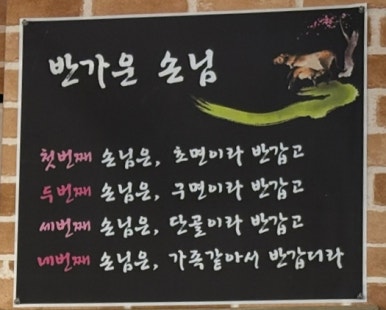 반가운 손님
첫번째 손님은, 초면이라 반갑고
두번째 손님은, 구면이라 반갑고
세번째 손님은, 단골이라 반갑고
네번째 손님은, 가족같아서 반갑더라